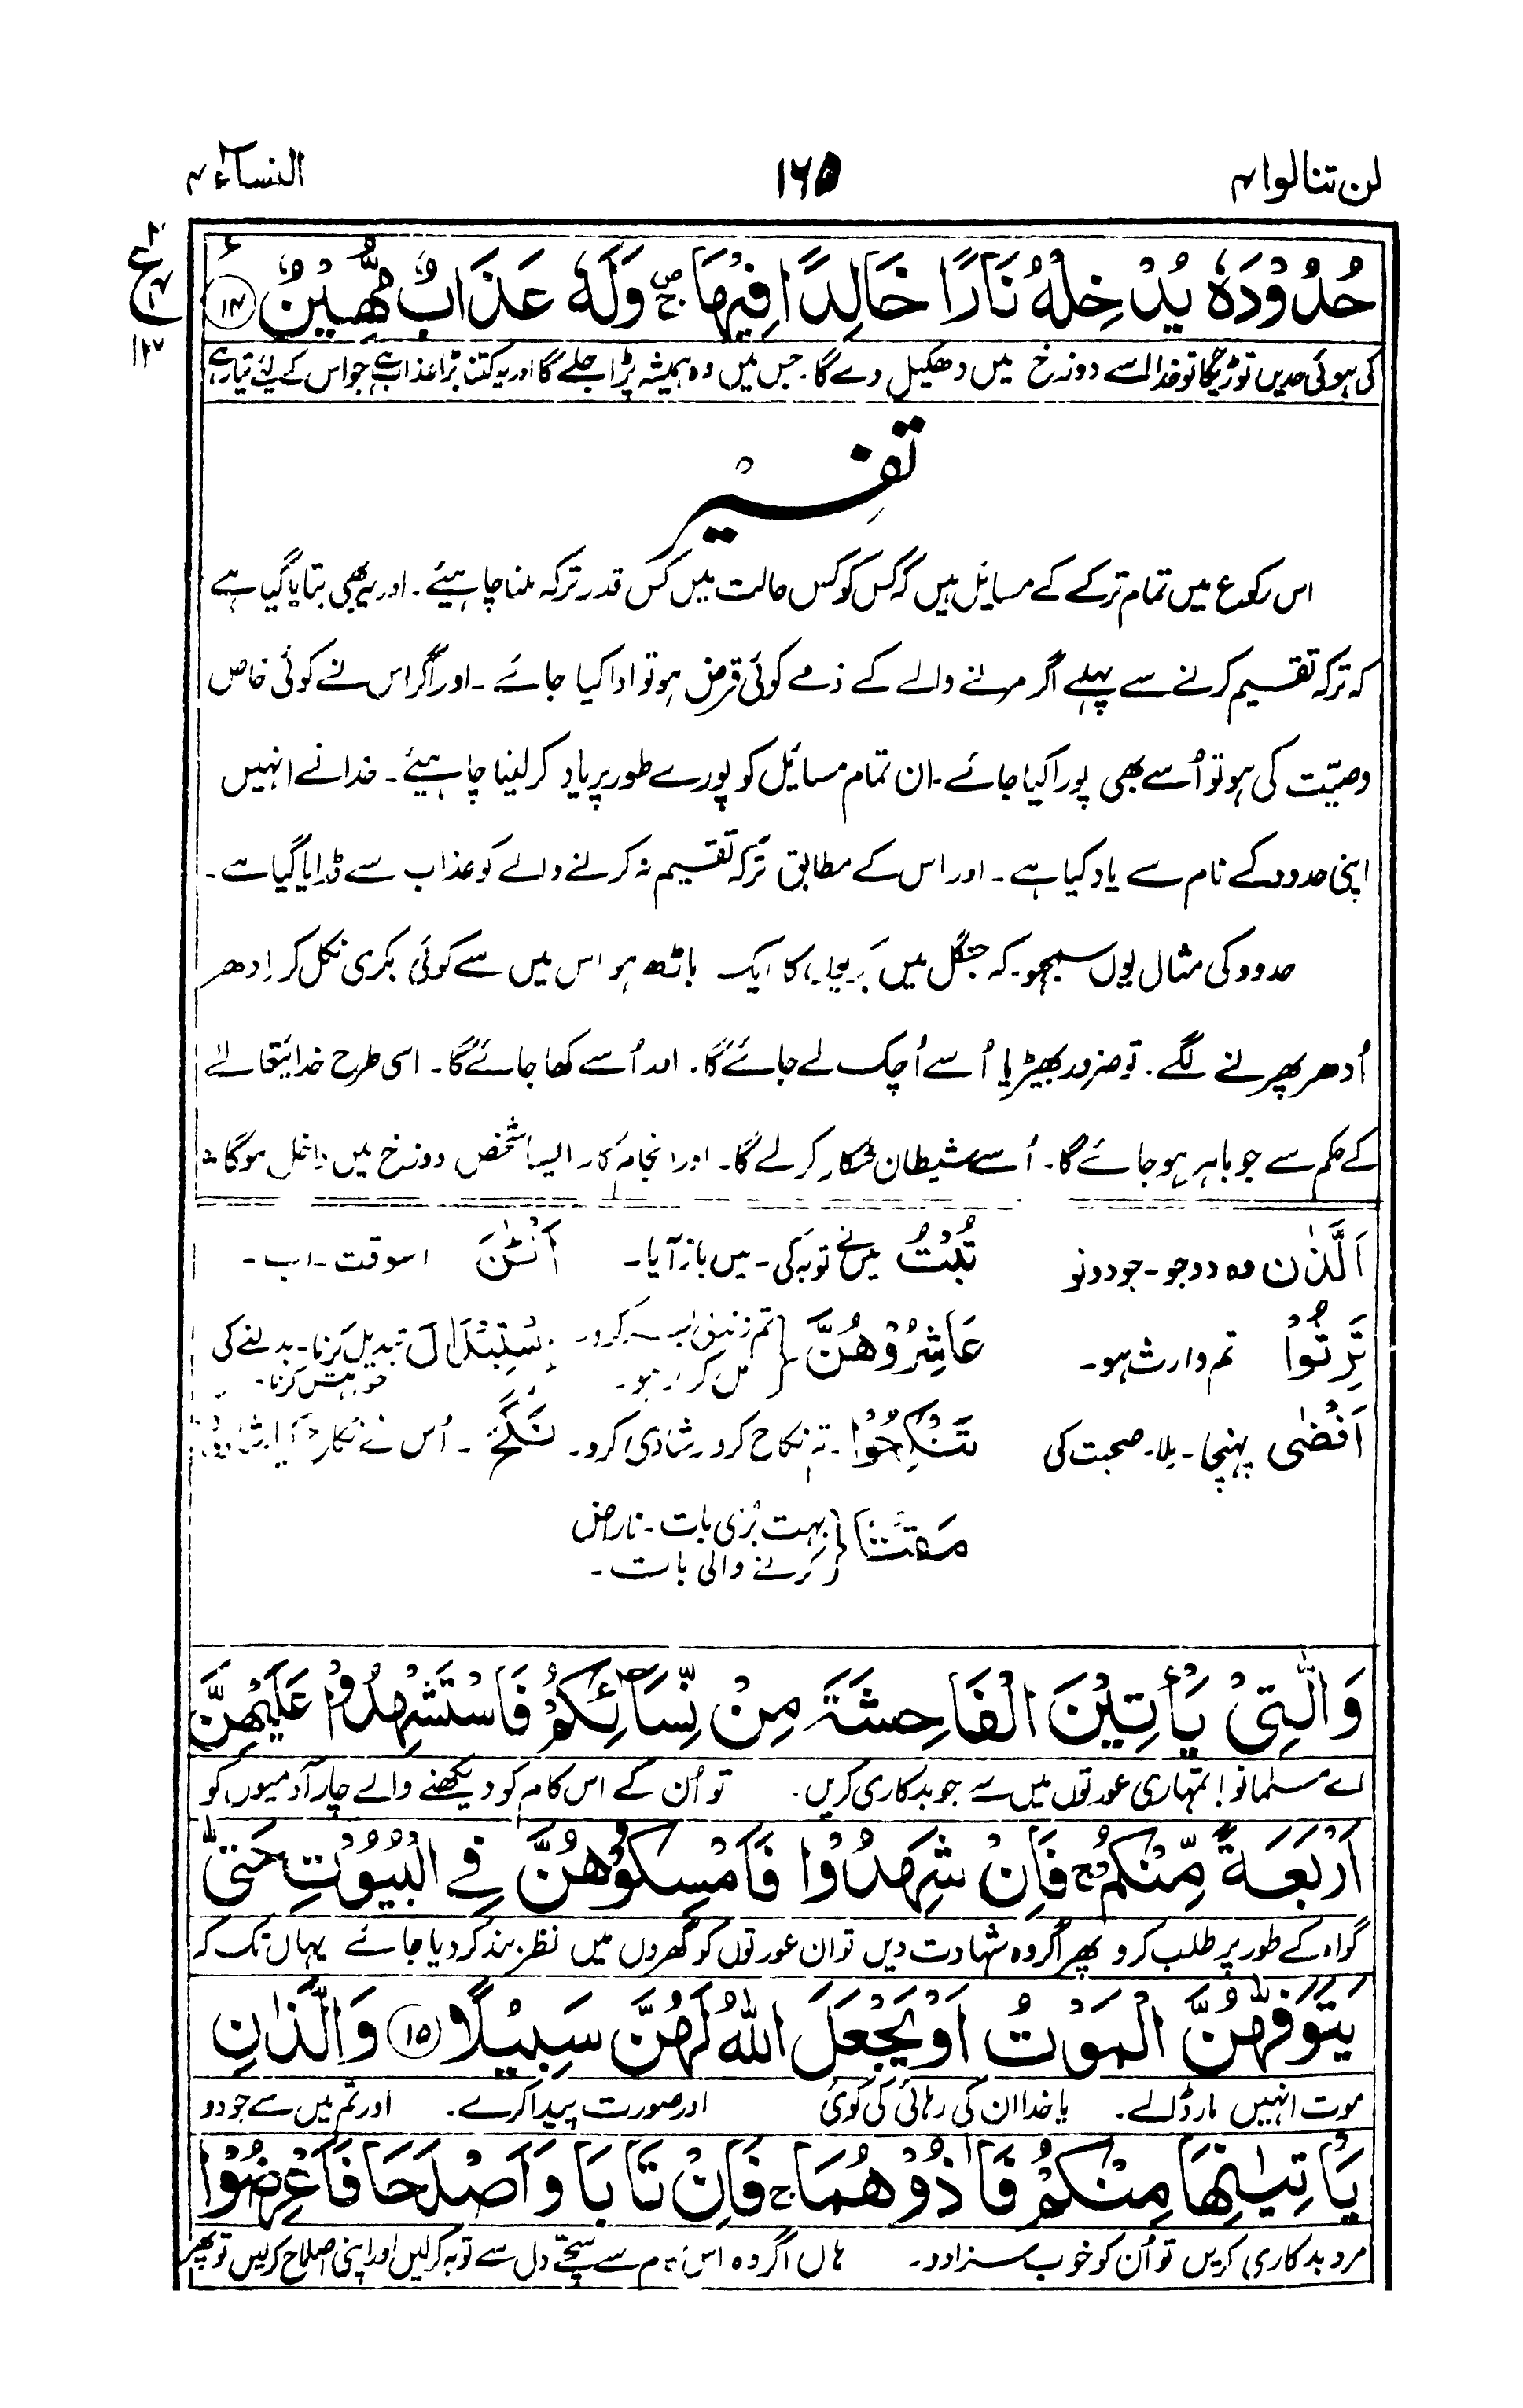 لن تنالوا ۴
۱۶۵
النسآء ۴
حُدُوْدَهٗ يُدْخِلْهُ نَارًا خَالِدًا فِيْهَا ۪ وَلَهٗ عَذَابٌ مُّهِيْنٌ ۧ (۱۴)
ع
۱۳
کی ہوئی حدیں توڑیگا تو خدا اسے دوزخ میں دھکیل دے گا۔ جس میں وہ ہمیشہ پڑا جلے گا اور یہ کتنا بڑا عذاب ہے جو اس کے لئے تیار ہے
تفسیر
اس رکوع میں تمام ترکے کے مسایل ہیں کہ کس کو کس حالت میں کس قدر ترکہ ملنا چاہیئے۔ اور یہ بھی بتایا گیا ہے
کہ ترکہ تقسیم کرنے سے پہلے اگر مرنے والے کے ذمے کوئی قرض ہو تو ادا کیا جائے۔ اور اگر اس نے کوئی خاص
وصیّت کی ہو تو اُسے بھی پورا کیا جائے۔ ان تمام مسائل کو پورے طور پر یاد کر لینا چاہیئے۔ خدا نے انہیں
اپنی حدود کے نام سے یاد کیا ہے۔ اور اس کے مطابق ترکہ تقسیم نہ کرنے والے کو عذاب سے ڈرایا گیا ہے۔
حدود کی مثال یوں سمجھو۔ کہ جنگل میں کا ایک باڑھ ہو اس میں سے کوئی بکری نکل کر اِدھر
اُدھر پھرنے لگے۔ تو ضرور بھیڑیا اُسے اُچک لے جائے گا۔ اور اُسے کھا جائے گا۔ اسی طرح خدایتعالےٰ
کے حکم سے جو باہر ہو جائے گا۔ اُسے شیطان شکار کر لے گا۔ اور انجام کار ایسا شخص دوزخ میں داخل ہو گا
اَلَّذٰنِ وہ دو جو۔ جو دونو تُبْتُ میں نے توبہ کی۔ میں باز آیا۔ اَلْـٰٔنَ اسوقت۔ اب۔
تَرِثُوْا تم وارث ہو۔ عَاشِرُوْهُنَّ تم زندگی بسر کرو۔ مل کر رہو۔ اِسْتِبْدَالَ تبدیل کرنا۔ بدلنے کی خواہش کرنا۔
اَفْضٰى پہنچا۔ ملا۔ صحبت کی تَنْكِحُوْا۔ تم نکاح کرو۔ شادی کرو۔ نَكَحَ۔ اُس نے نکاح کیا۔
مَقْتًا بہت بُری بات۔ ناراض
کرنے والی بات۔
وَالّٰتِيْ يَاْتِيْنَ الْفَاحِشَةَ مِنْ نِّسَآئِكُمْ فَاسْتَشْهِدُوْا عَلَيْهِنَّ
اے مسلمانو! تمہاری عورتوں میں سے جو بدکاری کریں۔ تو اُن کے اس کام کو دیکھنے والے چار آدمیوں کو
اَرْبَعَةً مِّنْكُمْ ۚ فَاِنْ شَهِدُوْا فَاَمْسِكُوْهُنَّ فِي الْبُيُوْتِ حَتّٰى
گواہ کے طور پر طلب کرو پھر اگر وہ شہادت دیں تو ان عورتوں کو گھروں میں نظر بند کر دیا جائے یہاں تک کہ
يَتَوَفّٰهُنَّ الْمَوْتُ اَوْ يَجْعَلَ اللّٰهُ لَهُنَّ سَبِيْلًا (۱۵) وَالَّذٰنِ
موت انہیں مار ڈالے۔ یا خدا ان کی رہائی کی کوئی اور صورت پیدا کرے۔ اور تم میں سے جو دو
يَاْتِيٰنِهَا مِنْكُمْ فَاٰذُوْهُمَا ۚ فَاِنْ تَابَا وَاَصْلَحَا فَاَعْرِضُوْا
مرد بدکاری کریں تو اُن کو خوب سزا دو۔ ہاں اگر وہ اس سے سچّے دل سے توبہ کرلیں اور اپنی اصلاح کرلیں تو پھر